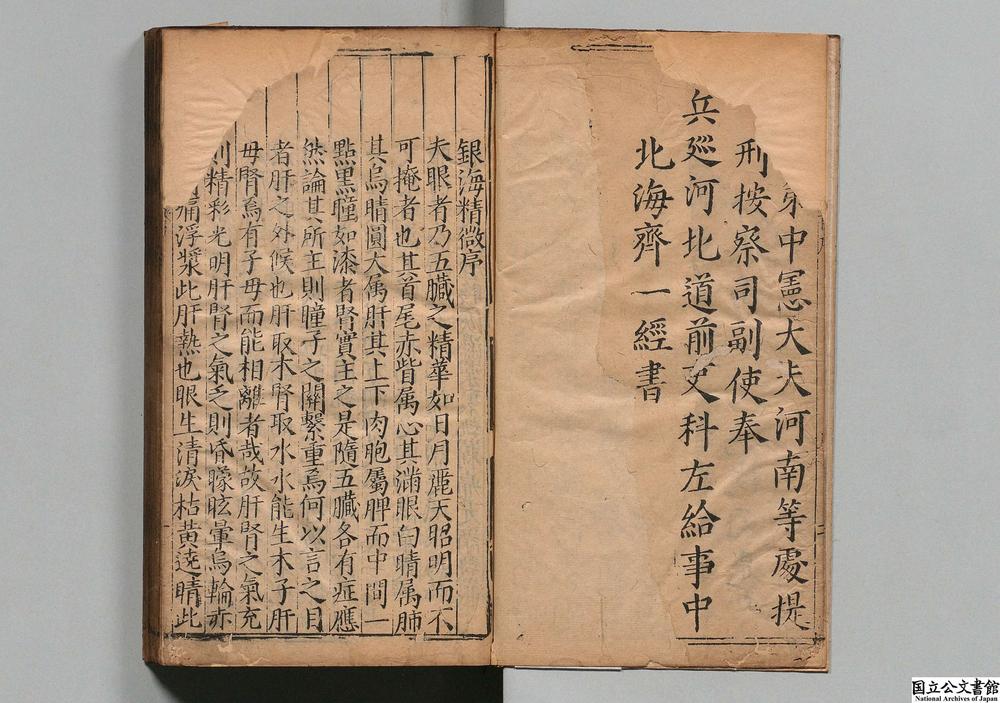 第中憲大夫河南等處提
刑按察司副使奉
兵廵河北道前吏科左給事中
北海齊一經書
銀海精微序
夫眼者乃五臟之精華如日月麗天昭明而不
可掩者也其首尾赤眥属心其滿眼白睛属肺
其烏睛圓大属肝其上下肉胞屬脾而中間一
點黑瞳如漆者腎實主之是隨五臟各有症應
然論其所主則瞳子之關繫重焉何以言之目
者肝之外候也肝取木腎取水水能生木子肝
母腎焉有子母而能相離者哉故肝腎之氣充
則精彩光明肝腎之氣乏則昏矇眩暈烏輪赤
痛浮漿此肝熱也眼生清淚枯黃遶睛此
国立公文書館
National Archives of Japan